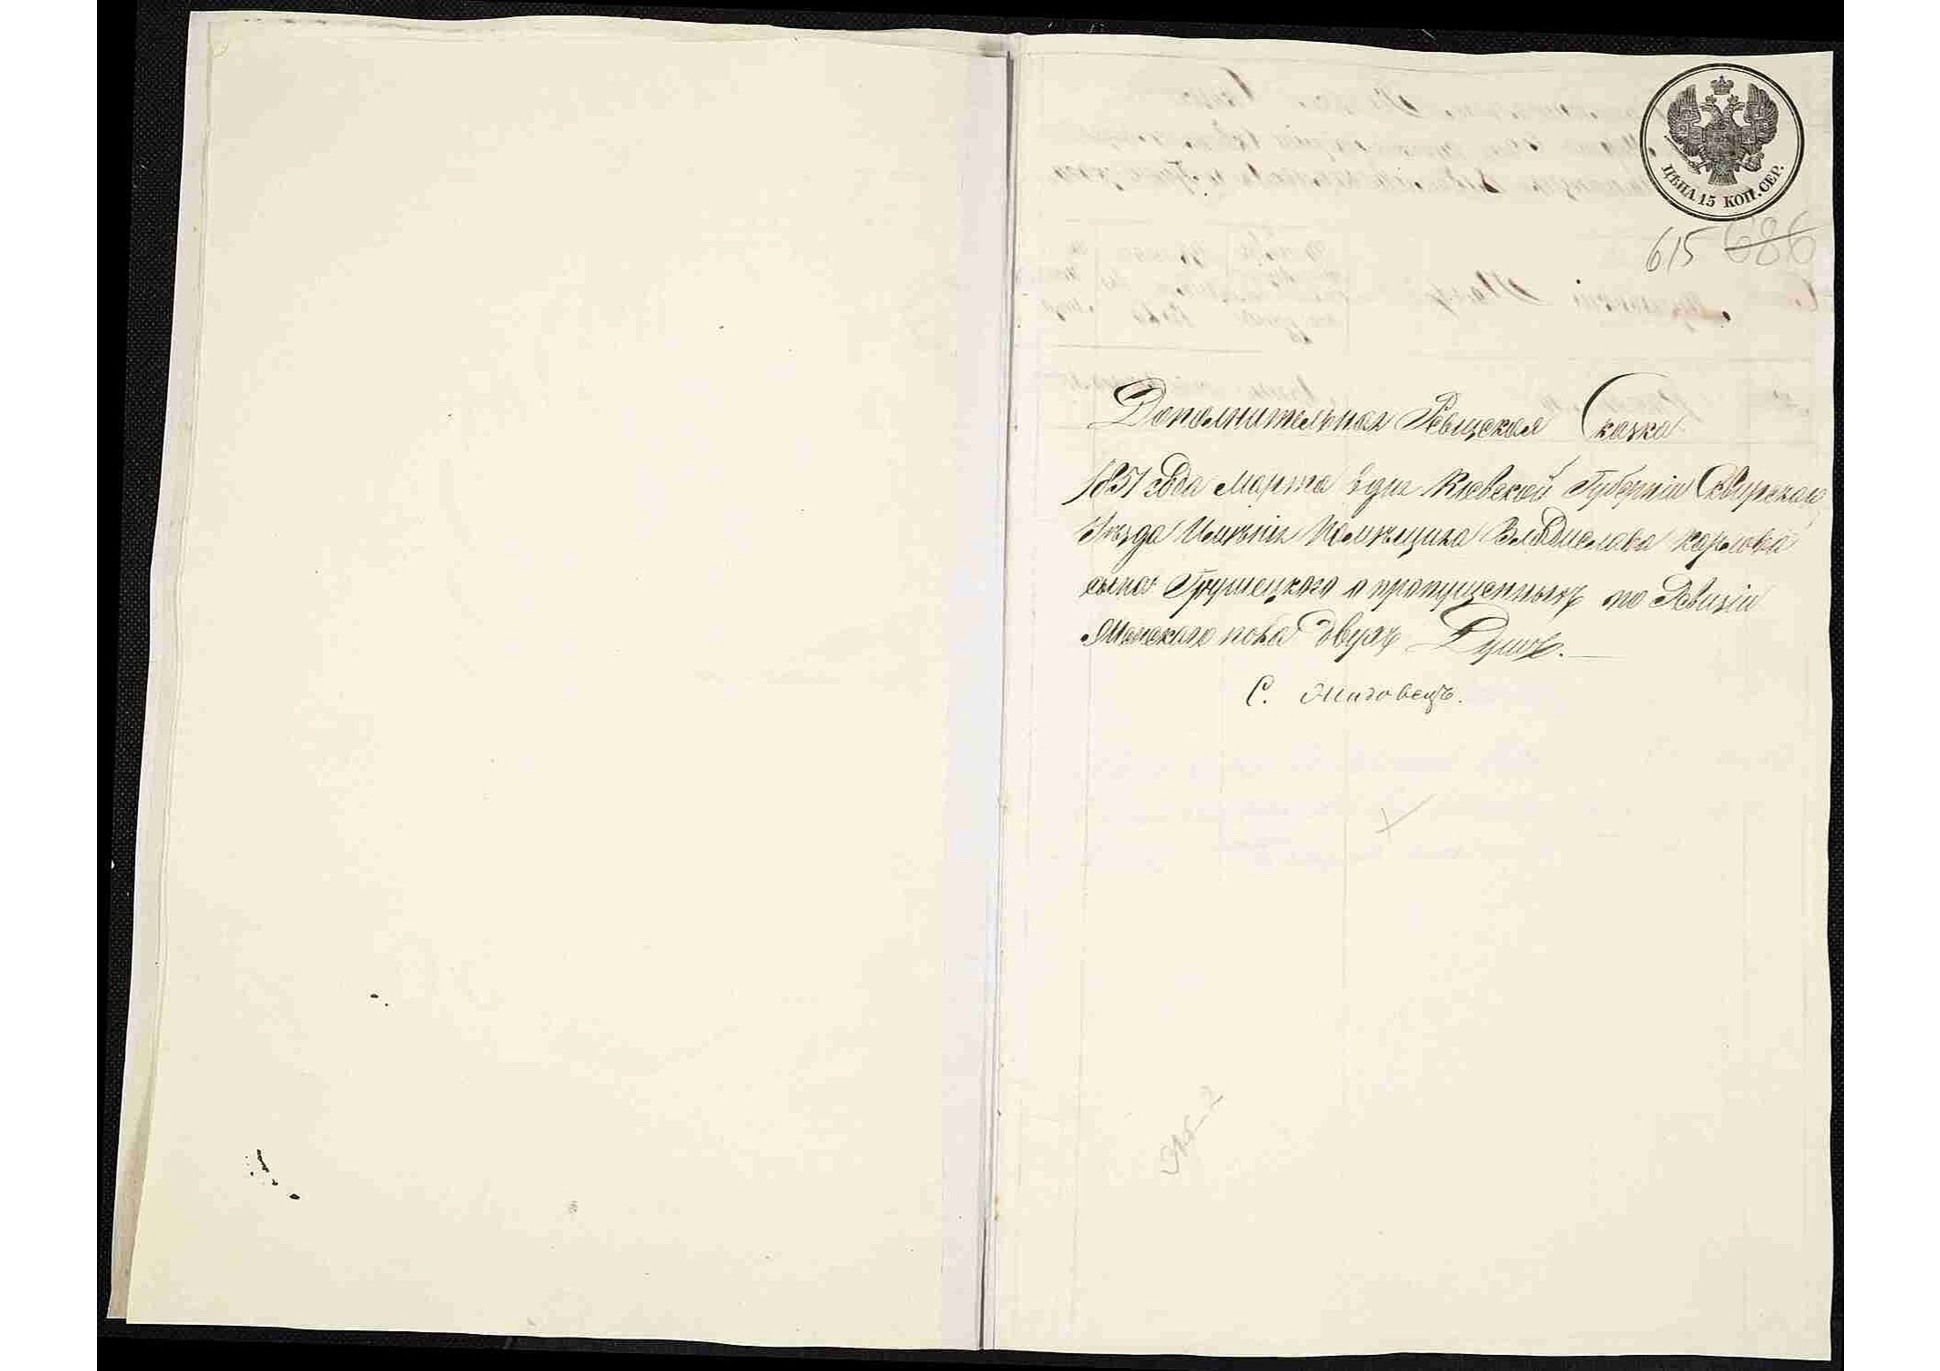 ЦѢНА 15 КОП. СЕР.
615 686
Дополнительная Ревизская Сказка
1851 года Марта дня Кіевской Губерніи Сквирскаго
Уѣзда Имѣнія Помѣщика Владислава Карлова
сына Грушецкого о пропущенныхъ по Ревизіи
Мужескаго пола двухъ Душъ.
С. Жидовецъ.